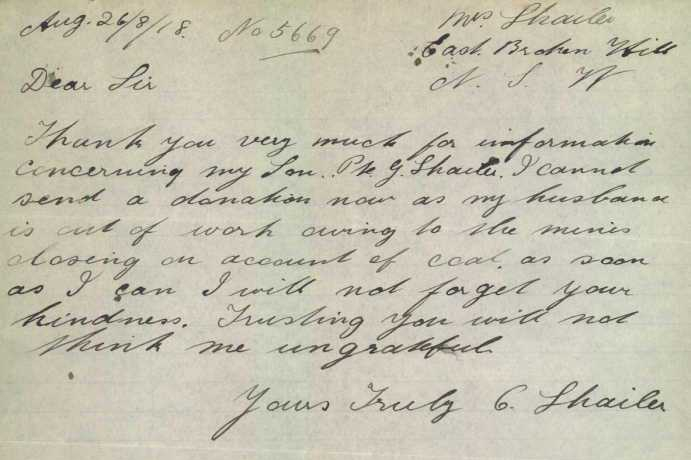 Aug. 26/8/18. No 5669 Mrs Shailer
East Broken Hill
Dear Sir N. S. W
Thank you very much for imformation
concerning my Son. Pte G. Shailer. I cannot
send a donation now as my husband
is out of work owing to the mines
closing on account of coal. as soon
as I can I will not forget your
kindness. Trusting you will not
think me ungrateful
Yours Truly C. Shailer